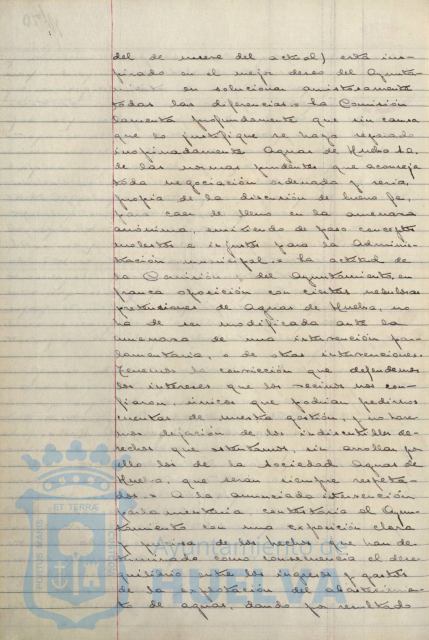 del de enero del actual) está ins-
pirado en el mejor deseo del Ayunta-
miento en solucionar amistosamente
todas las diferencias. La Comisión
lamenta profundamente que sin causa
que lo justifique se haya separado
inopinadamente Aguas de Huelva Sa,
de las normas prudentes que aconseja
toda negociación ordenada y seria,
propia de la discusión de buena fe,
para caer de lleno en la amenaza
anónima, emitiendo de paso conceptos
molestos e injustos para la Adminis-
tración municipal. La actitud de
la Comisión y del Ayuntamiento, en
franca oposición con ciertas
pretensiones de Aguas de Huelva, no
ha de ser modificada ante la
amenaza de una intervención par-
lamentaria, o de otras intervenciones.
Tenemos la convicción que defendemos
los intereses que los vecinos nos con-
fiaron, únicos que podrían pedirnos
cuentas de nuestra gestión, y no hare-
mos dejación de los indiscutibles de-
rechos que ostentamos, sin arrollar por
ello los de la Sociedad Aguas de
Huelva, que serán siempre respeta-
dos. A la anunciada intervención
parlamentaria contestaría el Ayun-
tamiento con una exposición clara
y precisa de los hechos que han de-
terminado como consecuencia el dese-
quilibrio entre los ingresos y gastos
de la explotación del abastecimien-
to de aguas, dando por resultado
PORTUS MARIS
ET TERRÆ
CUSTODIA
Ayuntamiento de
HUELVA